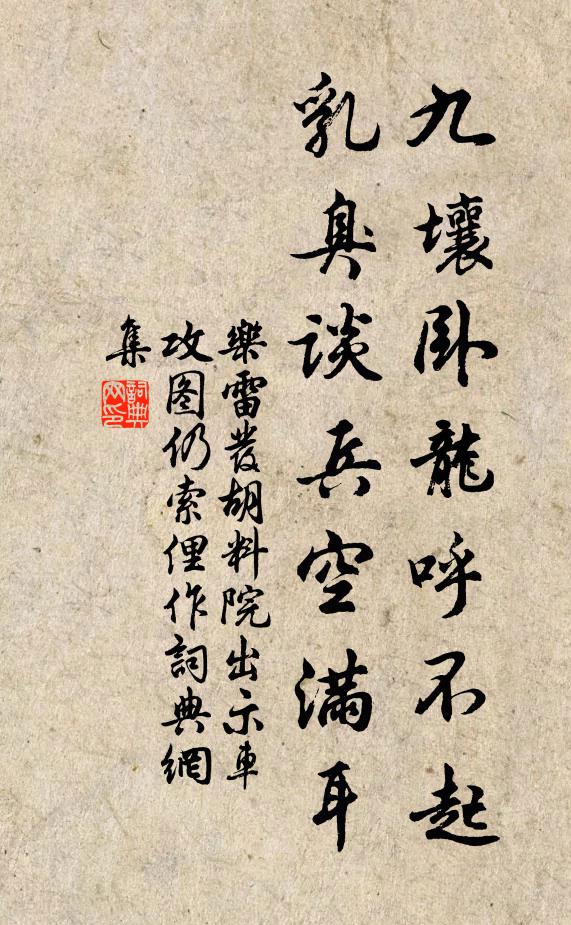 九壤卧龍呼不起
乳臭谈兵空滿耳
樂雷發胡料院出示車
攻图仍索俚作詞典網
集
詞典
网印